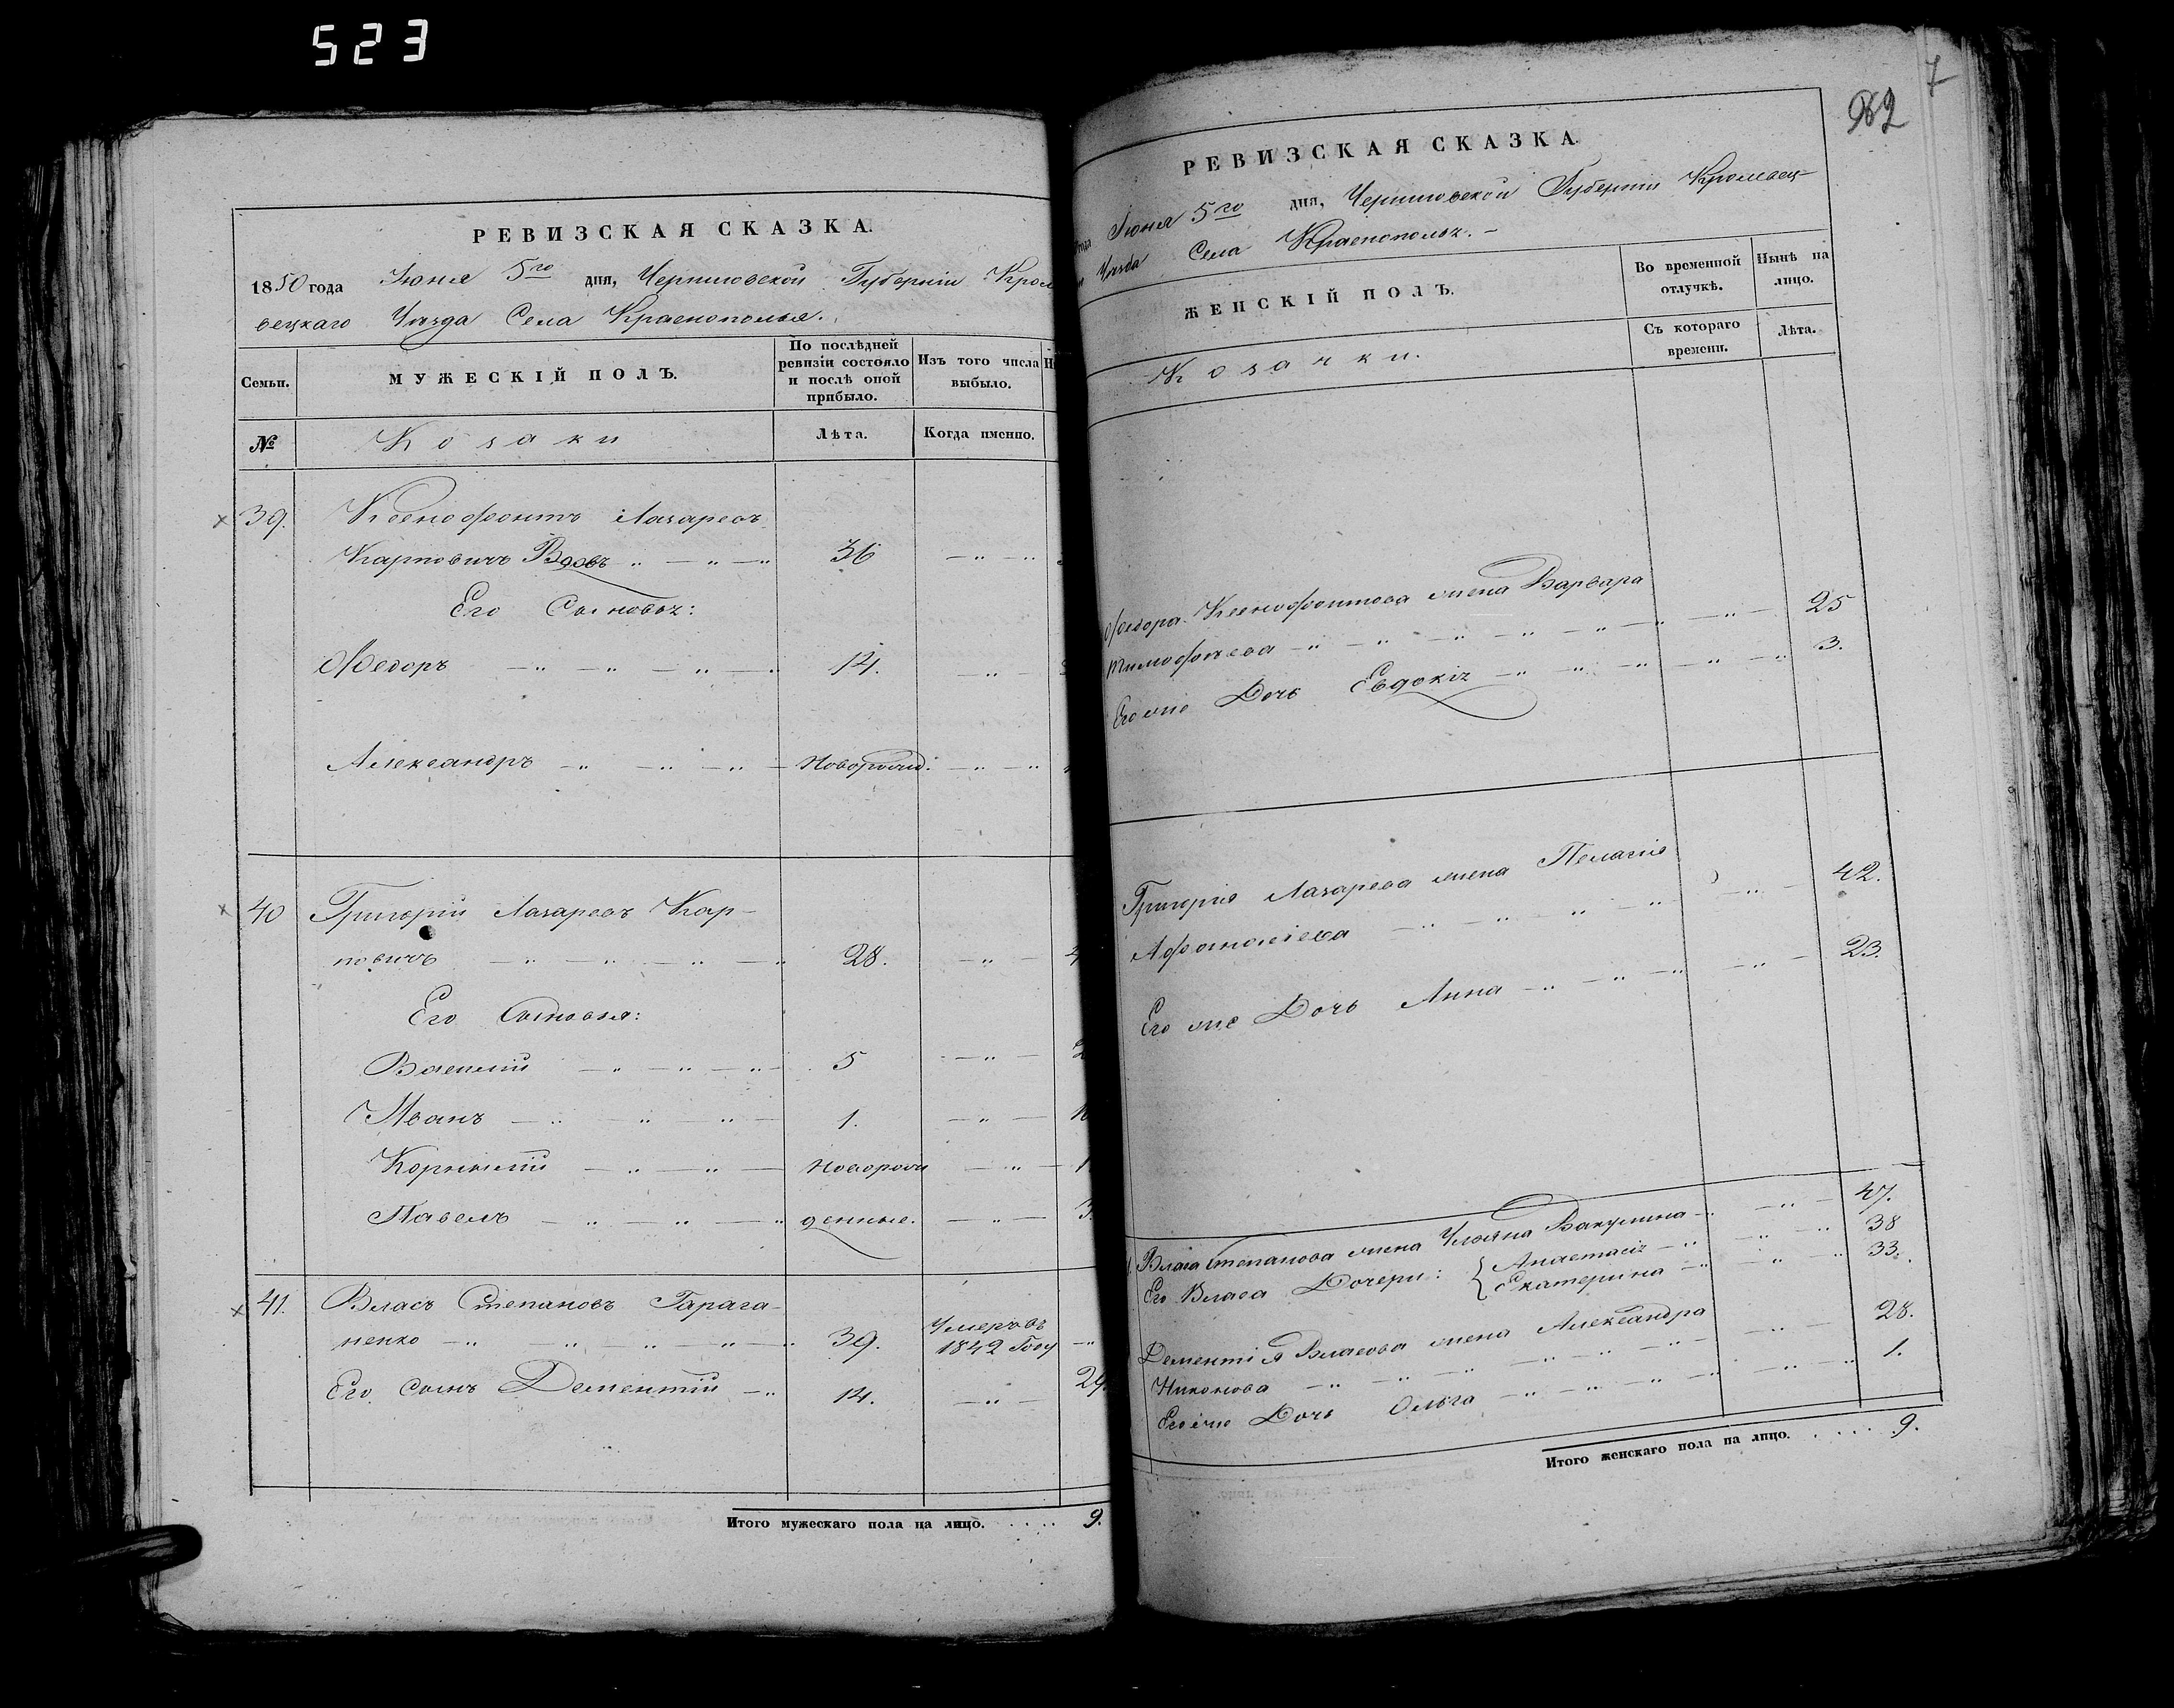 523
РЕВИЗСКАЯ СКАЗКА.
1850 года Іюня 5го дня, Черниговской Губерніи Крол
вецкаго Уѣзда Села Краснополья.
Семьи.
МУЖЕСКІЙ ПОЛЪ.
По послѣдней ревизіи состояло и послѣ оной прибыло.
Изъ того числа выбыло.
№
Козаки
Лѣта.
Когда именно.
39. Ксенофонтъ Лазаревъ
Карповичъ Вдовъ 36
Его Сыновья:
Федоръ 14.
Александръ Новорожд.
40 Григорій Лазаревъ Кар-
повичъ 28.
Его Сыновья:
Василій 5
Иванъ 1.
Корнилій Новорож
Павелъ денные.
41. Власъ Степановъ Гарага-
ненко 39. Умеръ въ 1842 Году
Его Сынъ Дементій 14. 24.
Итого мужескаго пола на лицо. . . . . 9.
7
РЕВИЗСКАЯ СКАЗКА.
года Іюня 5го дня, Черниговской Губерніи Кролевец-
Уѣзда Села Краснополья.
ЖЕНСКІЙ ПОЛЪ.
Во временной отлучкѣ.
Нынѣ на лицо.
Козачки.
Съ котораго времени.
Лѣта.
Федора Ксенофонтова жена Варвара
Тимофѣева 25
Его же Дочь Евдокія 3.
Григорія Лазарева жена Пелагія
Афанасіева 42.
Его же Дочь Анна 23.
Власа Степанова жена Ульяна Вакулина 47.
Его Власа Дочери: { Анастасія 38
Екатерина 33.
Дементія Власова жена Александра
Никонова 28.
Его же Дочь Ольга 1.
Итого женскаго пола на лицо. . . . . 9.